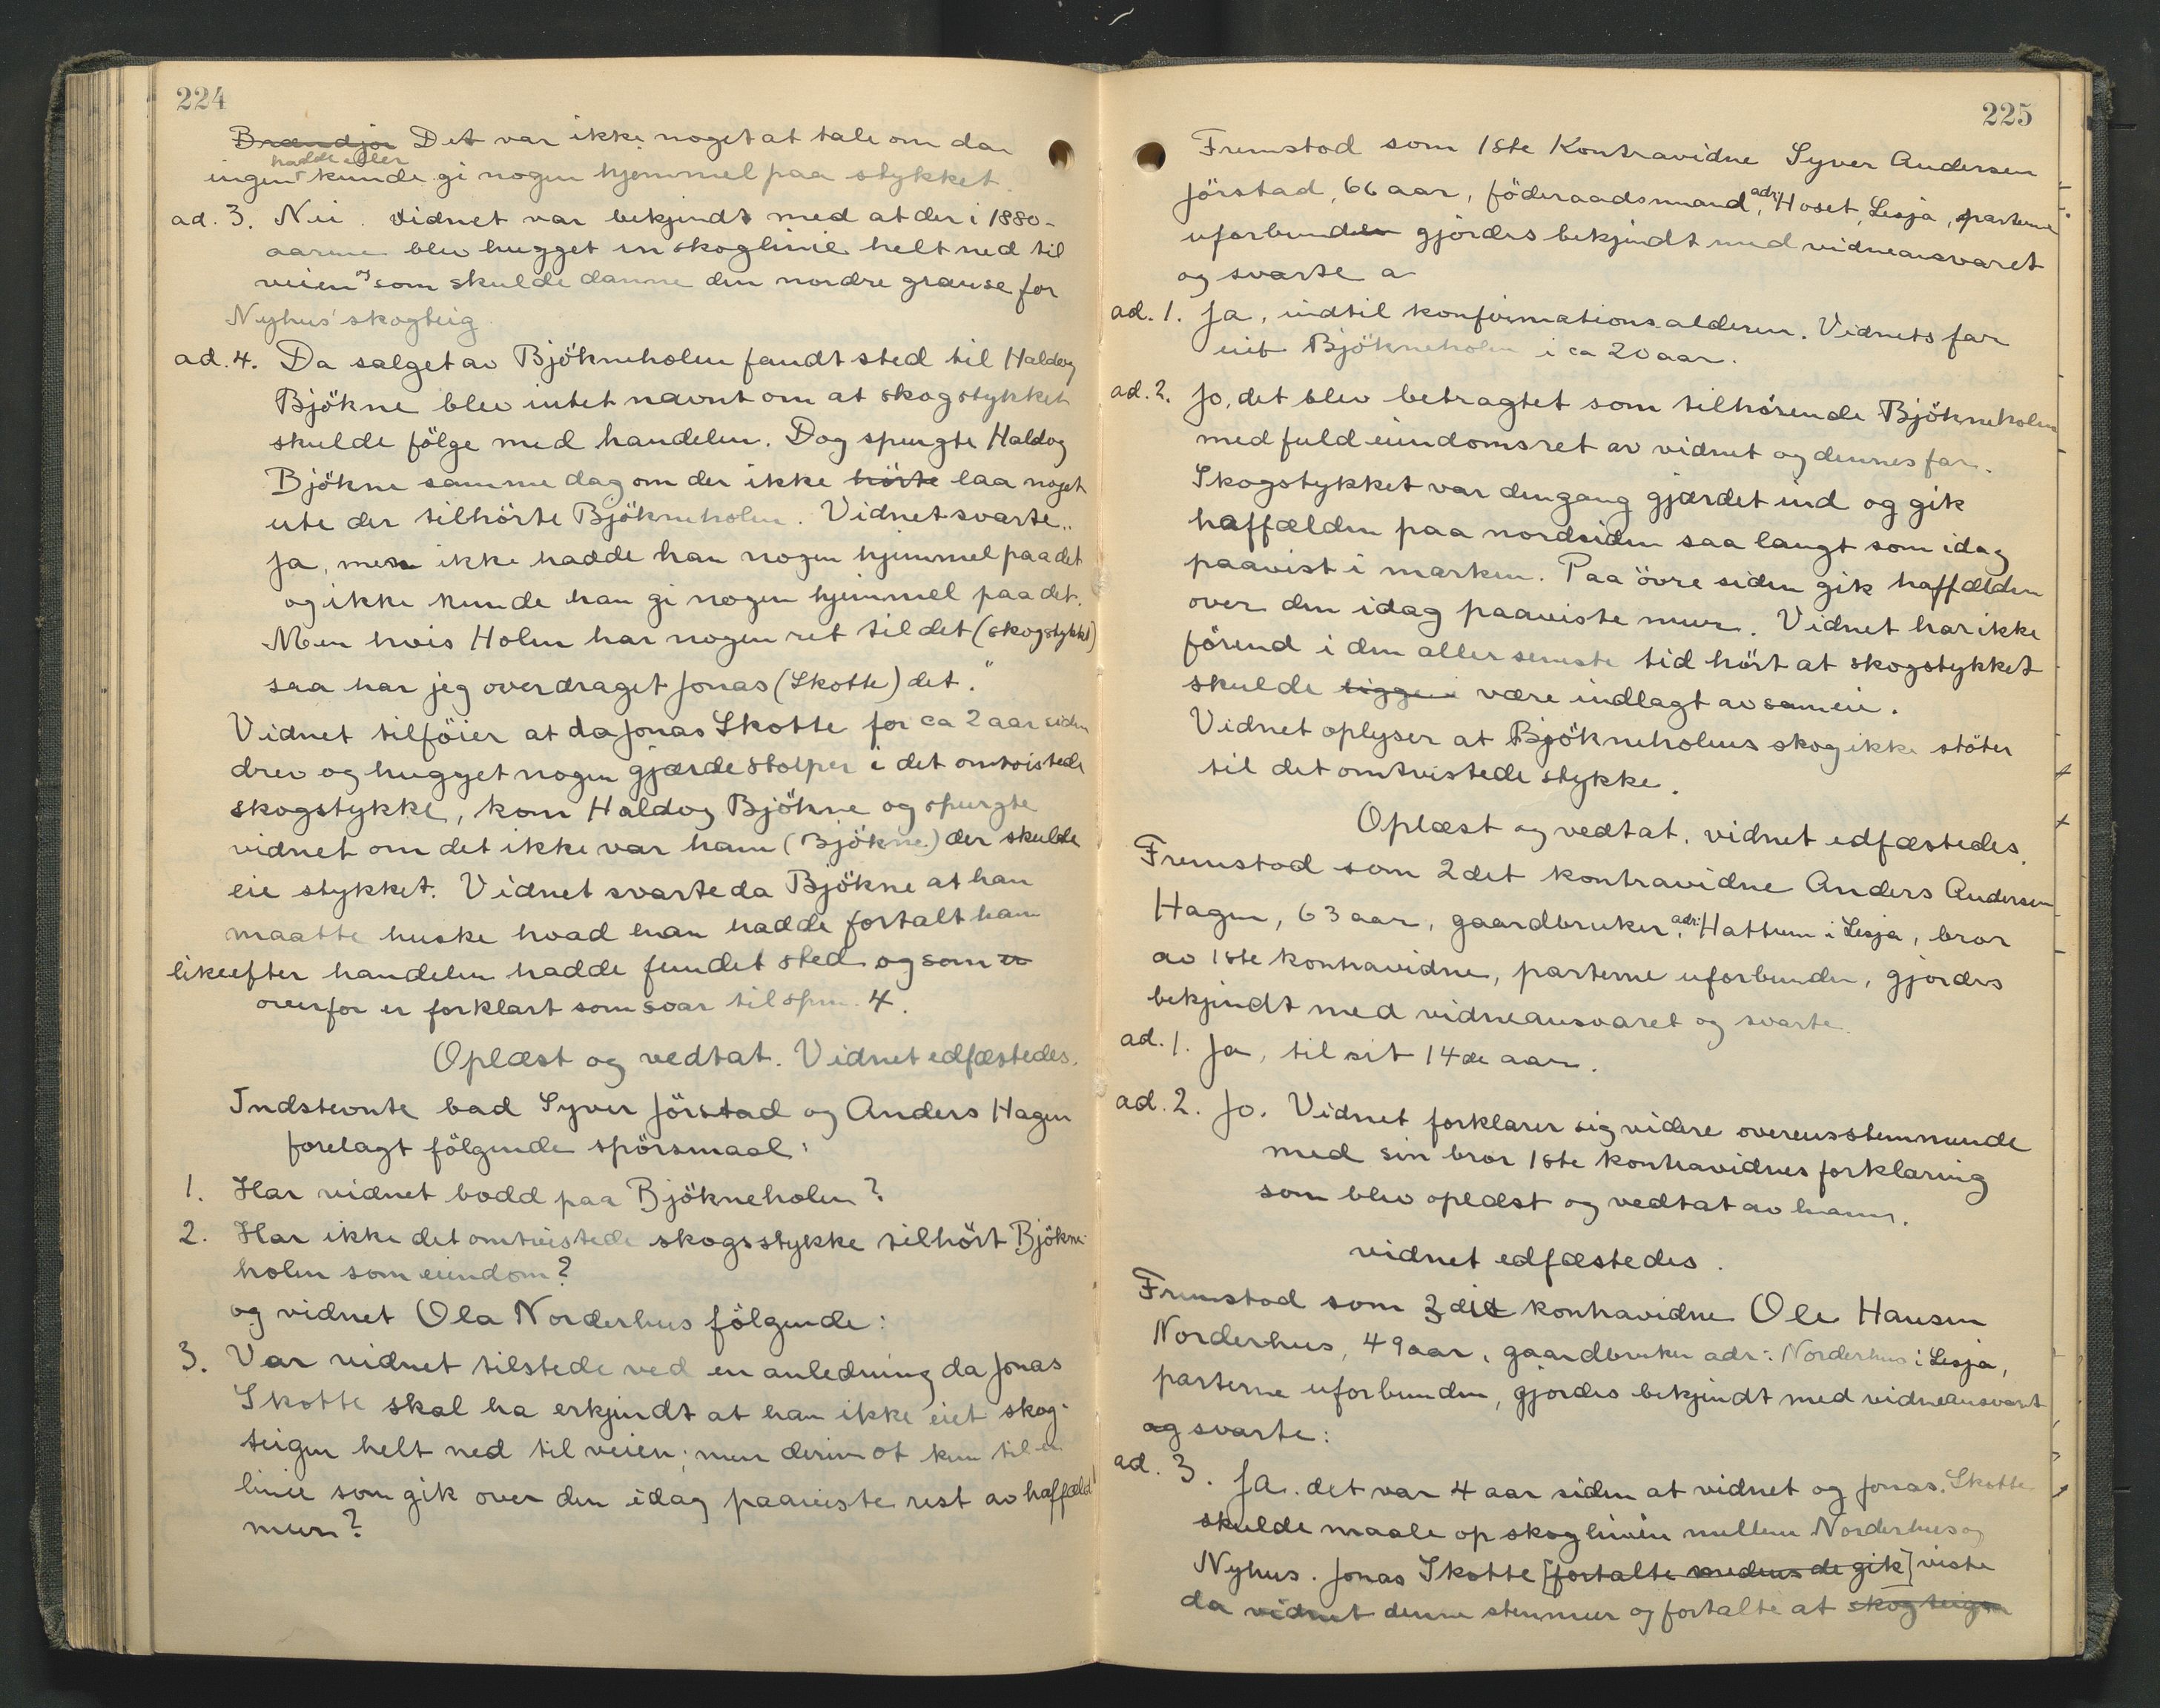 224
Brændjor Det var ikke noget at tale om da
hadde eller
ingen kunde gi nogen hjemmel paa stykket.
ad. 3. Nei. Vidnet var bekjendt med at der i 1880-
aarene blev hugget en skoglinie helt ned til
veien og som skulde danne den nordre grænse for
Nyhus' skogteig.
ad. 4. Da salget av Bjökneholen fandt sted til Haldog
Bjökne blev intet nævnt om at skogstykket
skulde fölge med handelen. Dog spurgte Haldog
Bjökne samme dag om der ikke hörte laa noget
ute der tilhörte Bjökneholen. Vidnet svarte „
Ja, men ikke hadde han nogen hjemmel paa det
og ikke kunde han gi nogen hjemmel paa det.
Men hvis Holen har nogen ret til det (skogstykket)
saa har jeg overdraget Jonas (Skotte) det."
Vidnet tilföier at da Jonas Skotte for ca 2 aar siden
drev og hugget nogen gjærdestolper i det omtvistede
skogstykke, kom Haldog Bjökne og spurgte
vidnet om det ikke var ham (Bjökne) der skulde
eie stykket. Vidnet svarte da Bjökne at han
maatte huske hvad han hadde fortalt ham
likeefter handelen hadde fundet sted og som er
ovenfor er forklart som svar til spm. 4.
Oplæst og vedtat. Vidnet edfæstedes.
Indstevnte bad Syver Jörstad og Anders Hagen
forelagt fölgende spörsmaal:
1. Har vidnet bodd paa Bjökneholen?
2. Har ikke det omtvistede skogsstykke tilhört Bjökne-
holen som eiendom?
og vidnet Ola Norderhus fölgende:
3. Var vidnet tilstede ved en anledning da Jonas
Skotte skal ha erkjendt at han ikke eiet skog-
teigen helt ned til veien, men derimot kun til en
linie som gik over den idag paaviste rest av haffæld
mur?
225
Fremstod som 1ste Kontravidne Syver Andersen
Jörstad, 66 aar, föderaadsmand, adr: Hoset, Lesja, parterne
uforbunden gjördes bekjendt med vidneansvaret
og svarte a
ad. 1. Ja, indtil konfirmationsalderen. Vidnets far
eiet Bjökneholen i ca 20 aar.
ad. 2. Jo, det blev betragtet som tilhörende Bjökneholen
med fuld eiendomsret av vidnet og dennes far.
Skogstykket var dengang gjærdet ind og gik
haffælden paa nordsiden saa langt som idag
paavist i marken. Paa övre siden gik haffælden
over den idag paaviste mur. Vidnet har ikke
förend i den aller seneste tid hört at skogstykket
skulde ligge i være indlagt av sameie.
Vidnet oplyser at Bjökneholens skog ikke stöter
til det omtvistede stykke.
Oplæst og vedtat. vidnet edfæstedes.
Fremstod som 2det kontravidne Anders Andersen
Hagen, 63 aar, gaardbruker, adr: Hattrem i Lesja, bror
av 1ste kontravidne, parterne uforbunden, gjordes
bekjendt med vidneansvaret og svarte.
ad. 1. Ja, til sit 14de aar.
ad. 2. Jo. Vidnet forklarer sig videre overensstemmende
med sin bror 1ste kontravidnes forklaring
som blev oplæst og vedtat av ham.
vidnet edfæstedes.
Fremstod som 3die kontravidne Ole Hansen
Norderhus, 49 aar, gaardbruker adr: Norderhus i Lesja,
parterne uforbunden, gjordes bekjendt med vidneansvaret
og svarte:
ad. 3. Ja. det var 4 aar siden at vidnet og Jonas Skotte
skulde maale op skoglinien mellem Norderhus og
Nyhus. Jonas Skotte [fortalte medens de gik] viste
da vidnet denne stenmur og fortalte at skogteigen